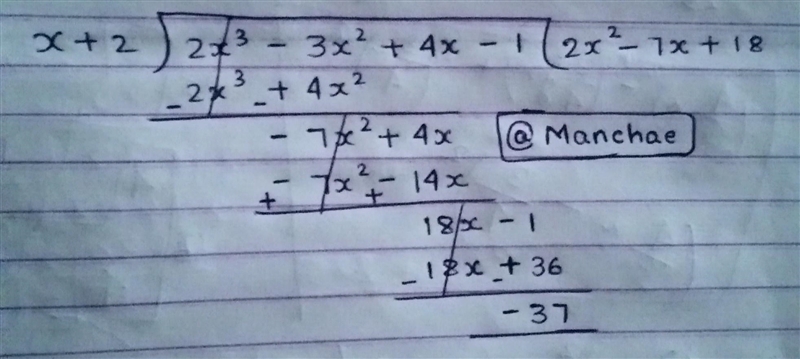 x + 2 ) 2x³ - 3x² + 4x - 1 ( 2x² - 7x + 18
- 2x³ - + 4x²
- 7x² + 4x
@ Manchae
+ - 7x² + - 14x
18x - 1
- 18x - + 36
- 37